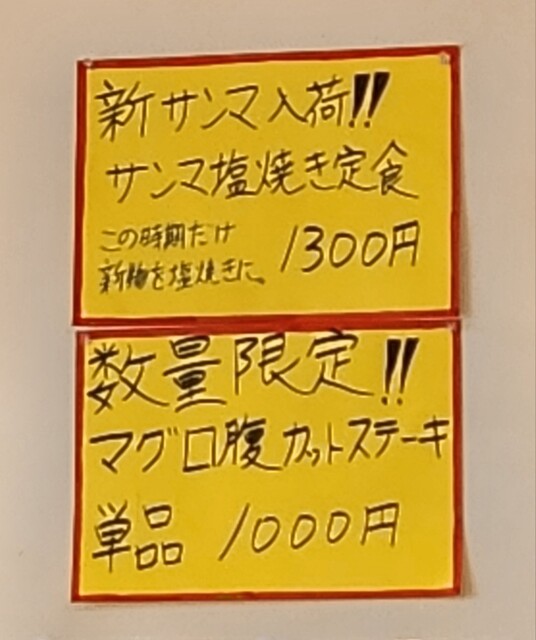 新サンマ入荷!!
サンマ塩焼き定食
この時期だけ
新物を塩焼きに。
1300円
数量限定!!
マグロ腹カットステーキ
単品 1000円